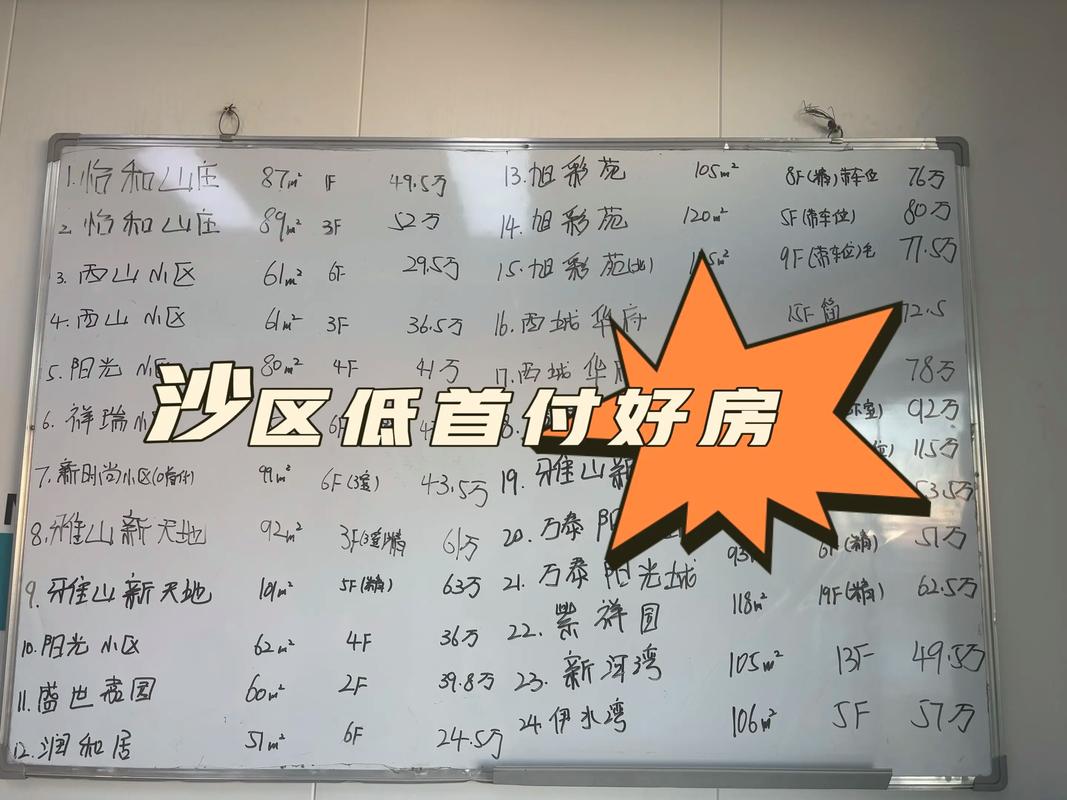 1.怡和山庄 87m² 1F 49.5万
2.怡和山庄 89m² 3F 52万
3.西山小区 61m² 6F 29.5万
4.西山小区 61m² 3F 36.5万
5.阳光小区 80m² 4F 41万
6.祥瑞小
7.新时尚小区(0首付) 99m² 6F(3室) 43.5万
8.雅山新天地 92m² 3F 61万
9.雅山新天地 101m² 5F(精) 63万
10.阳光小区 62m² 4F 36万
11.盛世嘉园 60m² 2F 39.8万
12.润和居 51m² 6F 24.5万
13.旭彩苑 105m² 8F(精)带车位 76万
14.旭彩苑 120m² 5F(带车位) 80万
15.旭彩苑(北) 9F(带车位)毛 77.5万
16.西城华府 15F简 72.5
17.西城华 78万
92万
115万
19.雅山新 53.5万
20.万泰阳 93 6F(精) 51万
21.万泰阳光城 118m² 19F(精) 62.5万
22.紫祥园 105m² 13F 49.5万
23.新河湾 106m² 5F 57万
24.伊水湾
沙区低首付好房